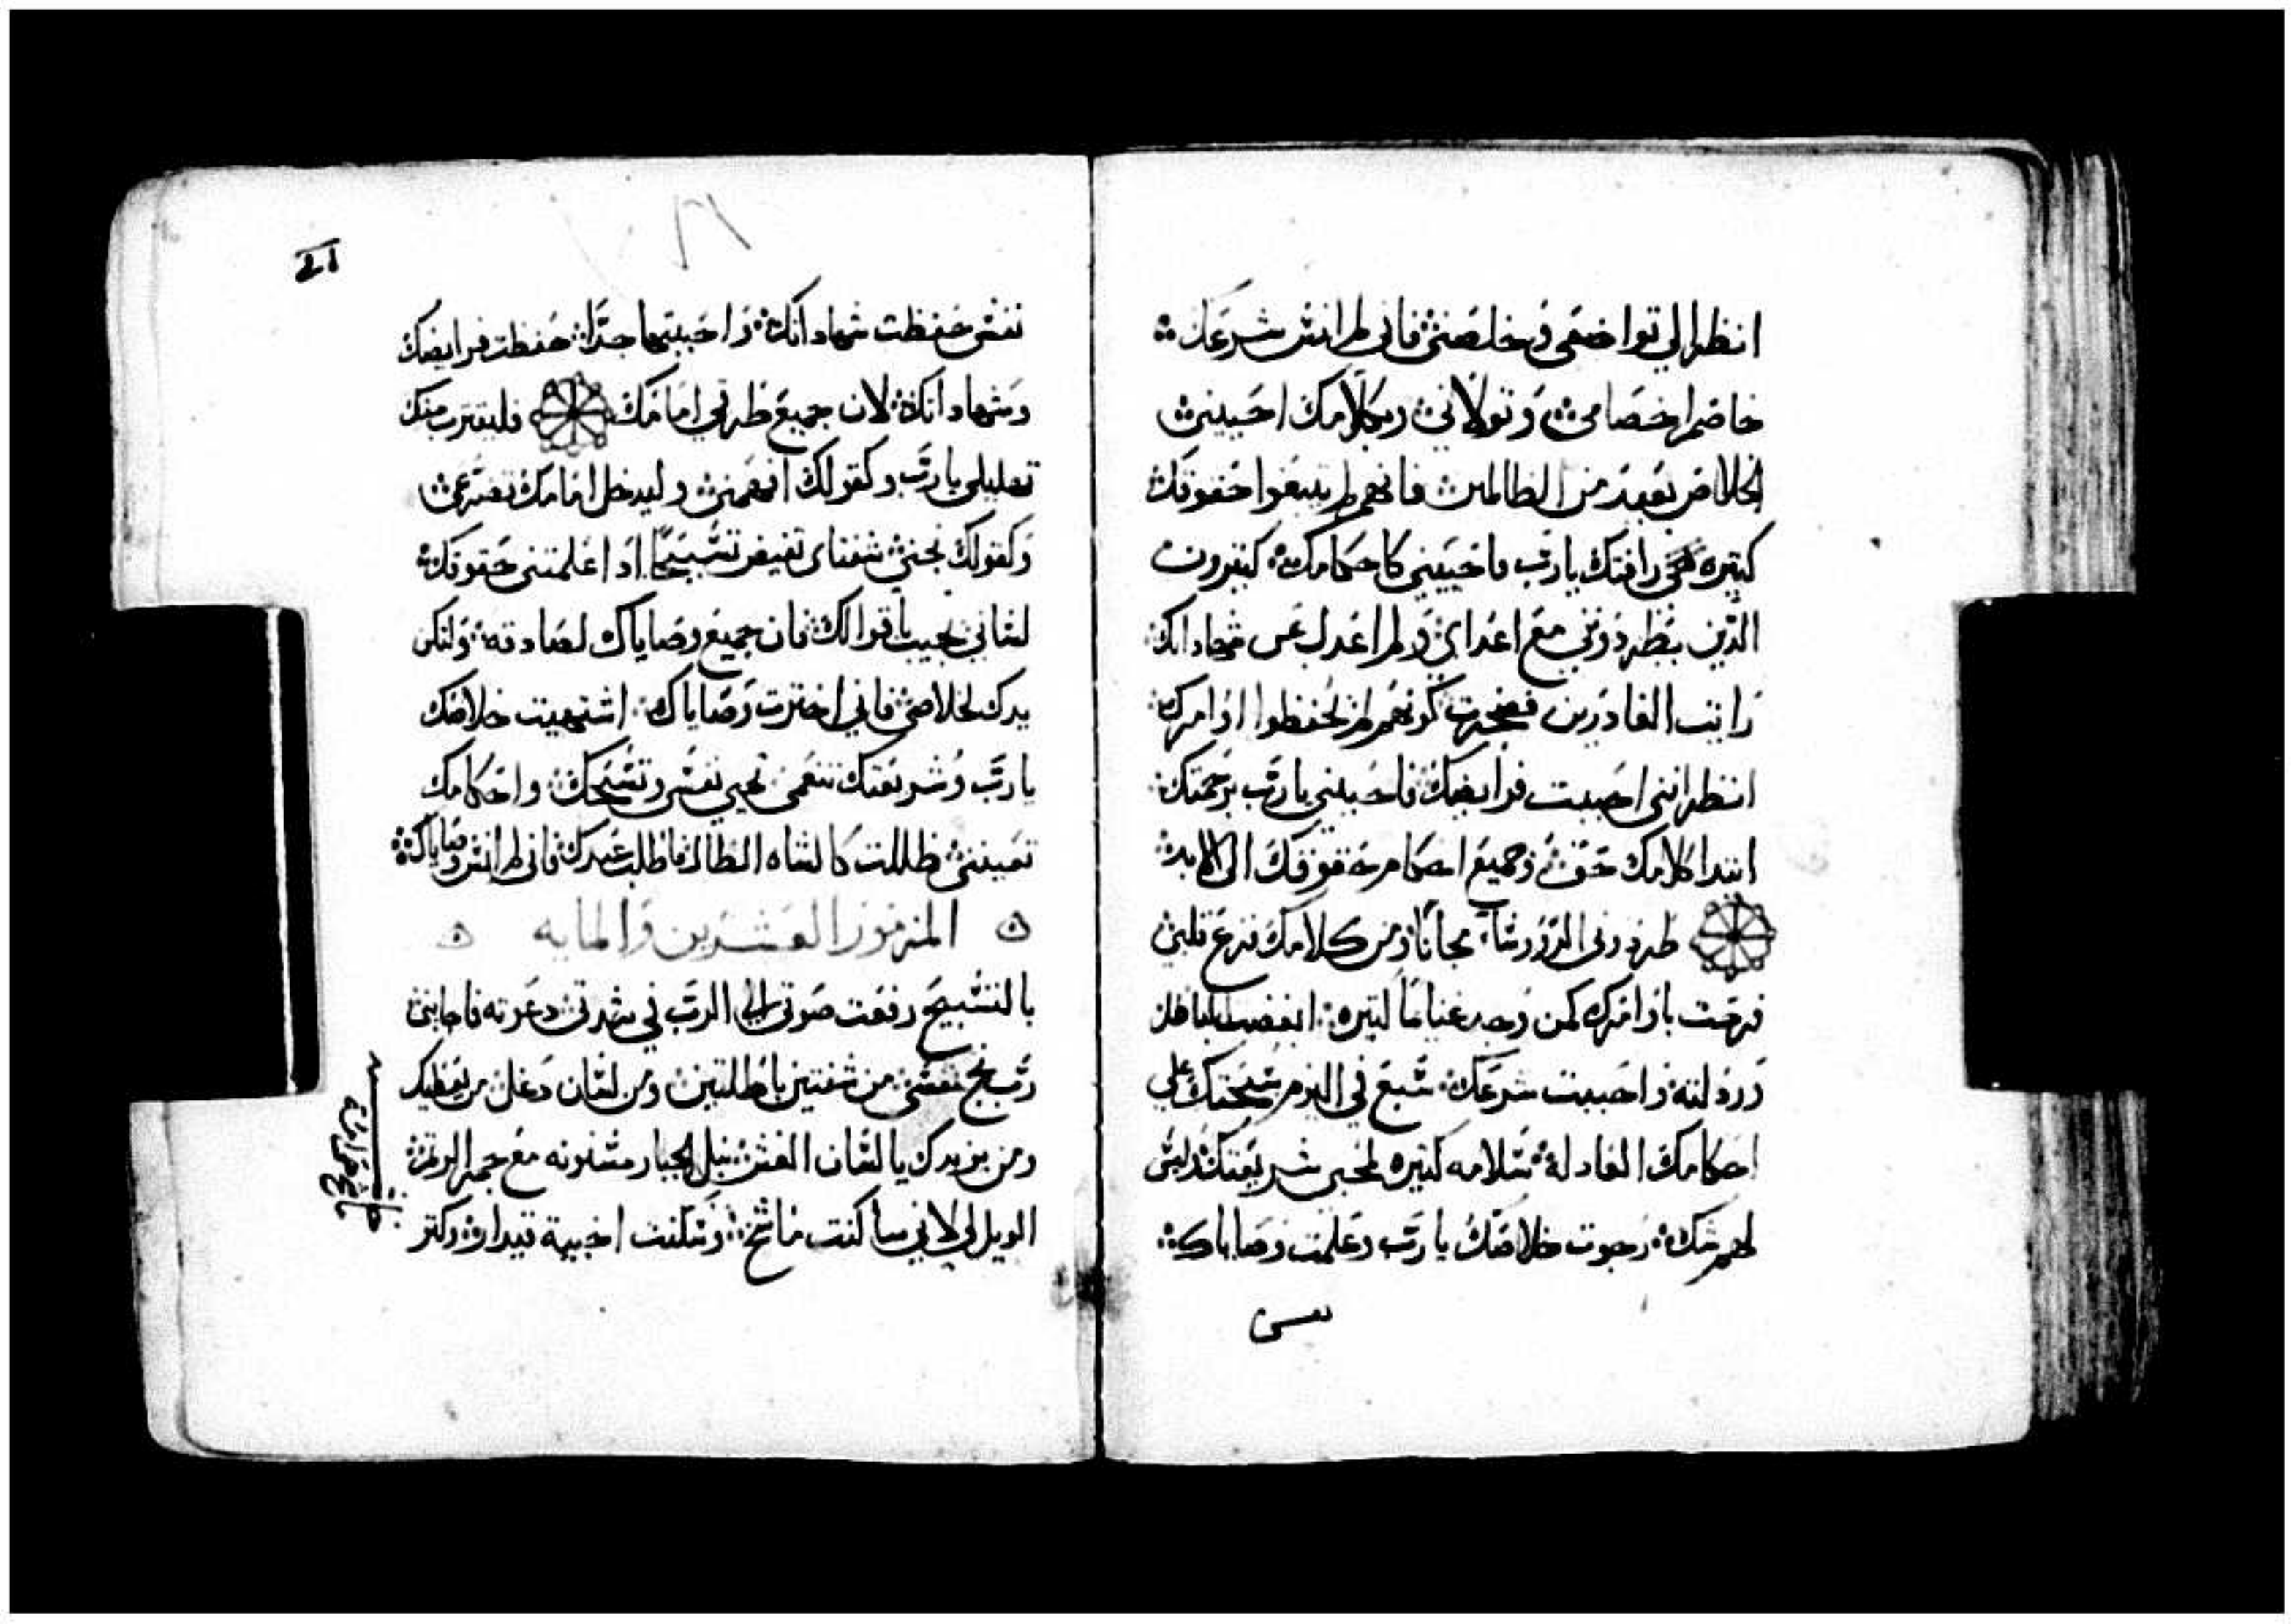 انظر الي تواضعي وخلصني فاني لم انس شرعك
خاصم اخصامي وتولاني وبكلامك احييني
الخلاص بعيد من الظالمين فانهم لم يتبعوا حقوقك
كتيره هي رافتك يارب فاحييني كاحكامك كتيرون
الذين يطردونني مع اعداي ولم اعدل عن شهاداتك
رايت الغادرين فضجرت كونهم لم يحفظوا اوامرك
انظر انني احببت فرايضك فاحييني يارب برحمتك
ابتدا كلامك حق وجميع احكام حقوقك الي الابد
طردوني الروسا مجانا ومن كلامك فزع قلبي
فرحت باوامرك كمن وجد غنايما كتيره ابغضت الباطل
ورذلته واحببت شرعك سبع في اليوم سبحتك علي
احكامك العادله سلامه كتيره لمحبي شريعتك وليس
لهم شك رجوت خلاصك يارب وعلمت وصاياك
نفسي
21
نفسي حفظت شهاداتك واحببتها جدا حفظت فرايضك
وشهاداتك لان جميع طرقي امامك فليقترب منك
تهليلي يارب وكقولك افهمني وليدخل امامك تضرعي
وكقولك نجني شفتاي تفيض تسبيحا اذ اعلمتني حقوقك
لساني يجيب باقوالك فان جميع وصاياك لصادقه ولتكن
يدك لخلاصي فاني اخترت وصاياك اشتهيت خلاصك
يارب وشريعتك تنعمي تحيي نفسي وتسبحك واحكامك
تعينني ظللت كالشاه الظال فاطلب عبدك فاني لم انس وصاياك
المزمور العشرين والمايه
بالتسبيح رفعت صوتي الي الرب في شدتي دعوته فاجابني
رب نج نفسي من شفتين باطلتين ومن لسان دغل من يعطيك
ومن يزيدك يا لسان الغش نبل الجبار مسنونه مع جمر الرتمه
الويل لي لاني ساكنت ماشخ وسكنت اخبية قيدار وكتر